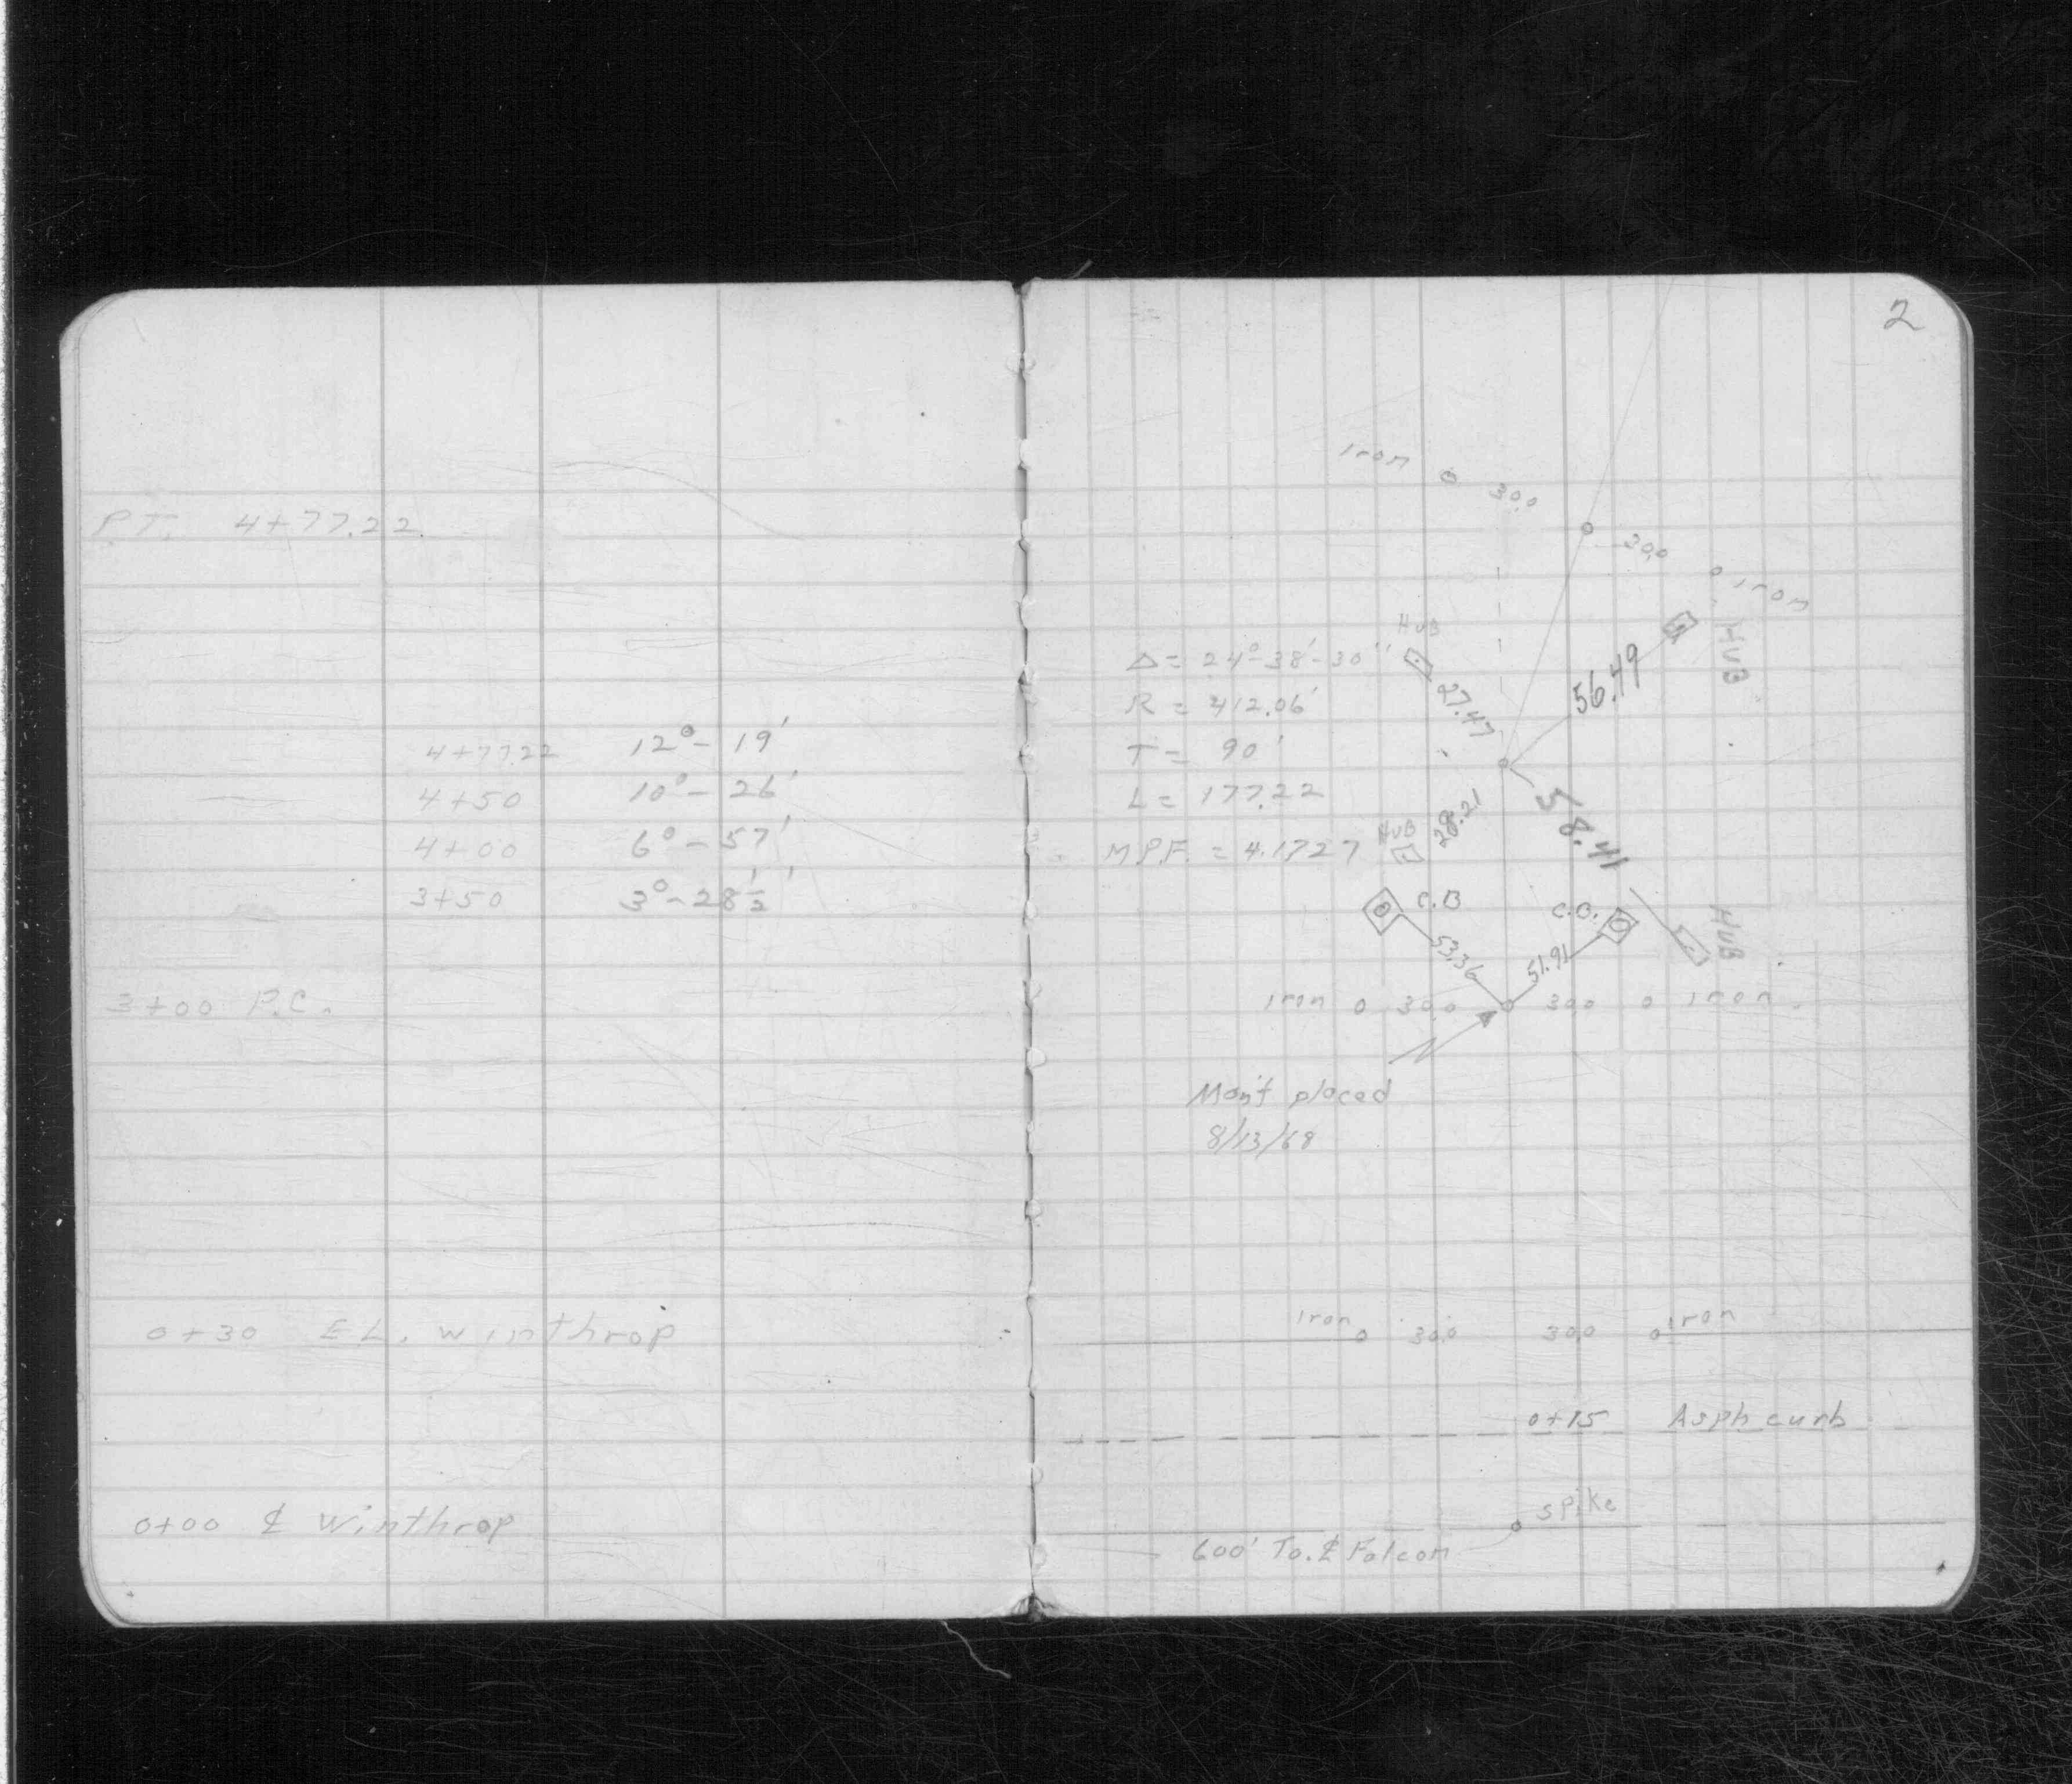 P.T. 4+77.22
4+77.22 12°- 19'
4+50 10°- 26'
4+00 6°- 57'
3+50 3°- 28 1/2'
3+00 P.C.
0+30 E.L. Winthrop
0+00 ℄ Winthrop
2
Iron 30.0
30.0 Iron
HUB
HUB
Δ = 24°-38'-30"
R = 412.06'
T = 90'
L = 177.22
M.P.F. = 4.1727
27.47
56.49
28.21
58.41
HUB
HUB
C.B
C.B.
53.36
51.91
Iron 30.0 30.0 Iron
Mon't placed
8/13/68
Iron 30.0 30.0 Iron
0+15 Asph curb
spike
600' To ℄ Falcon